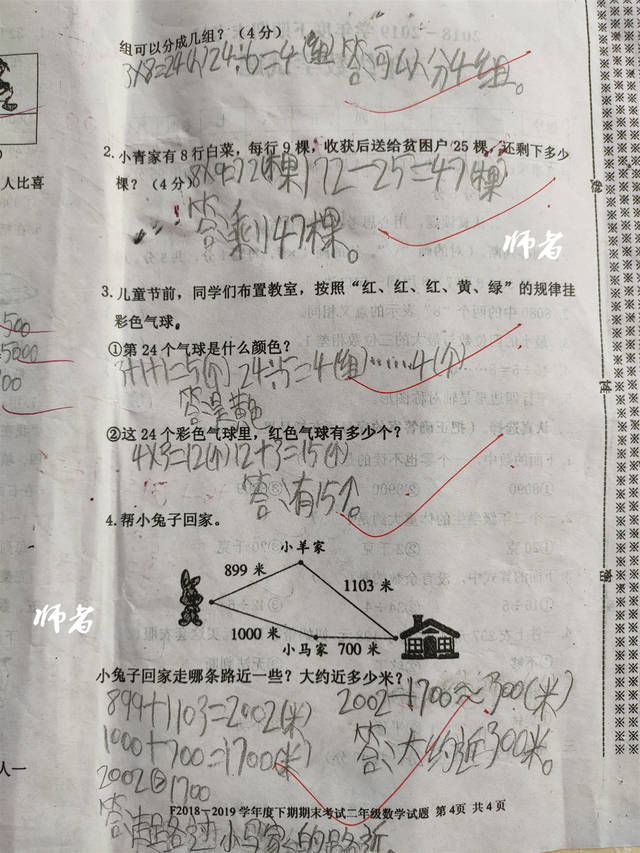 组可以分成几组？（4分）
3×8=24(人)24÷6=4(组)答:可以分4组。
2.小青家有8行白菜，每行9棵，收获后送给贫困户25棵，还剩下多少
人比喜
棵？（4分）
8×9=72(棵)72-25=47(棵)
答:剩47棵。
师者
3.儿童节前，同学们布置教室，按照“红、红、红、黄、绿”的规律挂
彩色气球。
500
5000
00
①第24个气球是什么颜色？
3+1+1=5(个) 24÷5=4(组)……4(个)
答:是黄色
②这24个彩色气球里，红色气球有多少个？
4×3=12(个)12+3=15(个)
答:有15个。
4.帮小兔子回家。
小羊家
899 米
1103 米
1000 米
小马家
700 米
师者
小兔子回家走哪条路近一些？大约近多少米？
899+1103=2002(米)
2002-1700≈300(米)
1000+700=1700(米)
答:大约近300米。
2002>1700
人一
F2018－2019学年度下期期末考试二年级数学试题 第4页 共4页
小马家的路近。